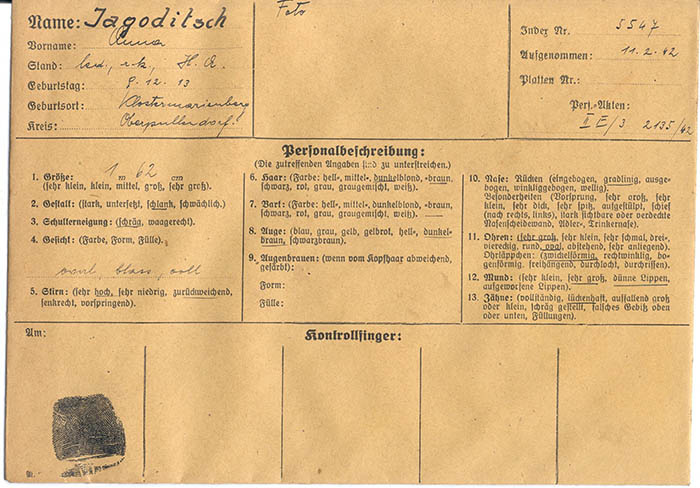 Name: Jagoditsch
Vorname: Anna
Stand: led., r.k., H. A.
Geburtstag: 9. 12. 13
Geburtsort: Klostermarienberg
Kreis: Oberpullendorf.
Foto
Index Nr. 5547
Aufgenommen: 11.2.42
Platten Nr.:
Pers.-Akten:
II E/3 2135/42
Personalbeschreibung:
(Die zutreffenden Angaben sind zu unterstreichen.)
1. Größe: 1 m 62 cm
(sehr klein, klein, mittel, groß, sehr groß).
2. Gestalt: (stark, untersetzt, schlank, schwächlich).
3. Schulterneigung: (schräg, waagerecht).
4. Gesicht: (Farbe, Form, Fülle).
oval, blass, voll
5. Stirn: (sehr hoch, sehr niedrig, zurückweichend,
senkrecht, vorspringend).
6. Haar: (Farbe: hell-, mittel-, dunkelblond, -braun,
schwarz, rot, grau, graugemischt, weiß).
7. Bart: (Farbe: hell-, mittel-, dunkelblond, -braun,
schwarz, rot, grau, graugemischt, weiß).
8. Auge: (blau, grau, gelb, gelbrot, hell-, dunkel-
braun, schwarzbraun).
9. Augenbrauen: (wenn vom Kopfhaar abweichend,
gefärbt):
Form:
Fülle:
10. Nase: Rücken (eingebogen, gradlinig, ausge-
bogen, winkliggebogen, wellig).
Besonderheiten (Vorsprung, sehr groß, sehr
klein, sehr dick, sehr spitz, aufgestülpt, schief
(nach rechts, links), stark sichtbare oder verdeckte
Nasenscheidewand, Adler-, Trinkernase).
11. Ohren: (sehr groß, sehr klein, sehr schmal, drei-
viereckig, rund, oval, abstehend, sehr anliegend).
Ohrläppchen: (zwickelförmig, rechtwinklig, bo-
genförmig, freihängend, durchlocht, durchrissen).
12. Mund: (sehr klein, sehr groß, dünne Lippen,
aufgeworfene Lippen).
13. Zähne: (vollständig, lückenhaft, auffallend groß
oder klein, schräg gestellt, falsches Gebiß oben
oder unten, Füllungen).
Am:
Kontrollfinger: